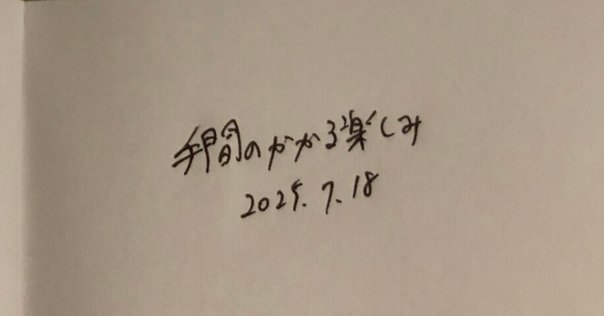 手間のかかる楽しみ
2025.7.18